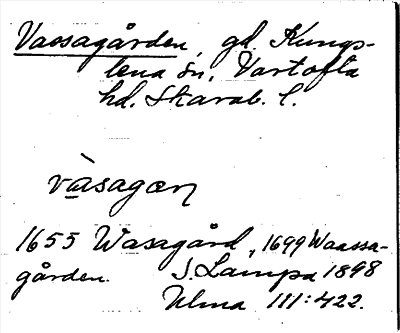 Vassagården, gd. Kungs-
lena sn, Vartofta
hd. Skarab. l.
vàsagan
1655 Wasagård, 1699 Waassa-
gården. J. Lampa 1898
Ulma III:422.